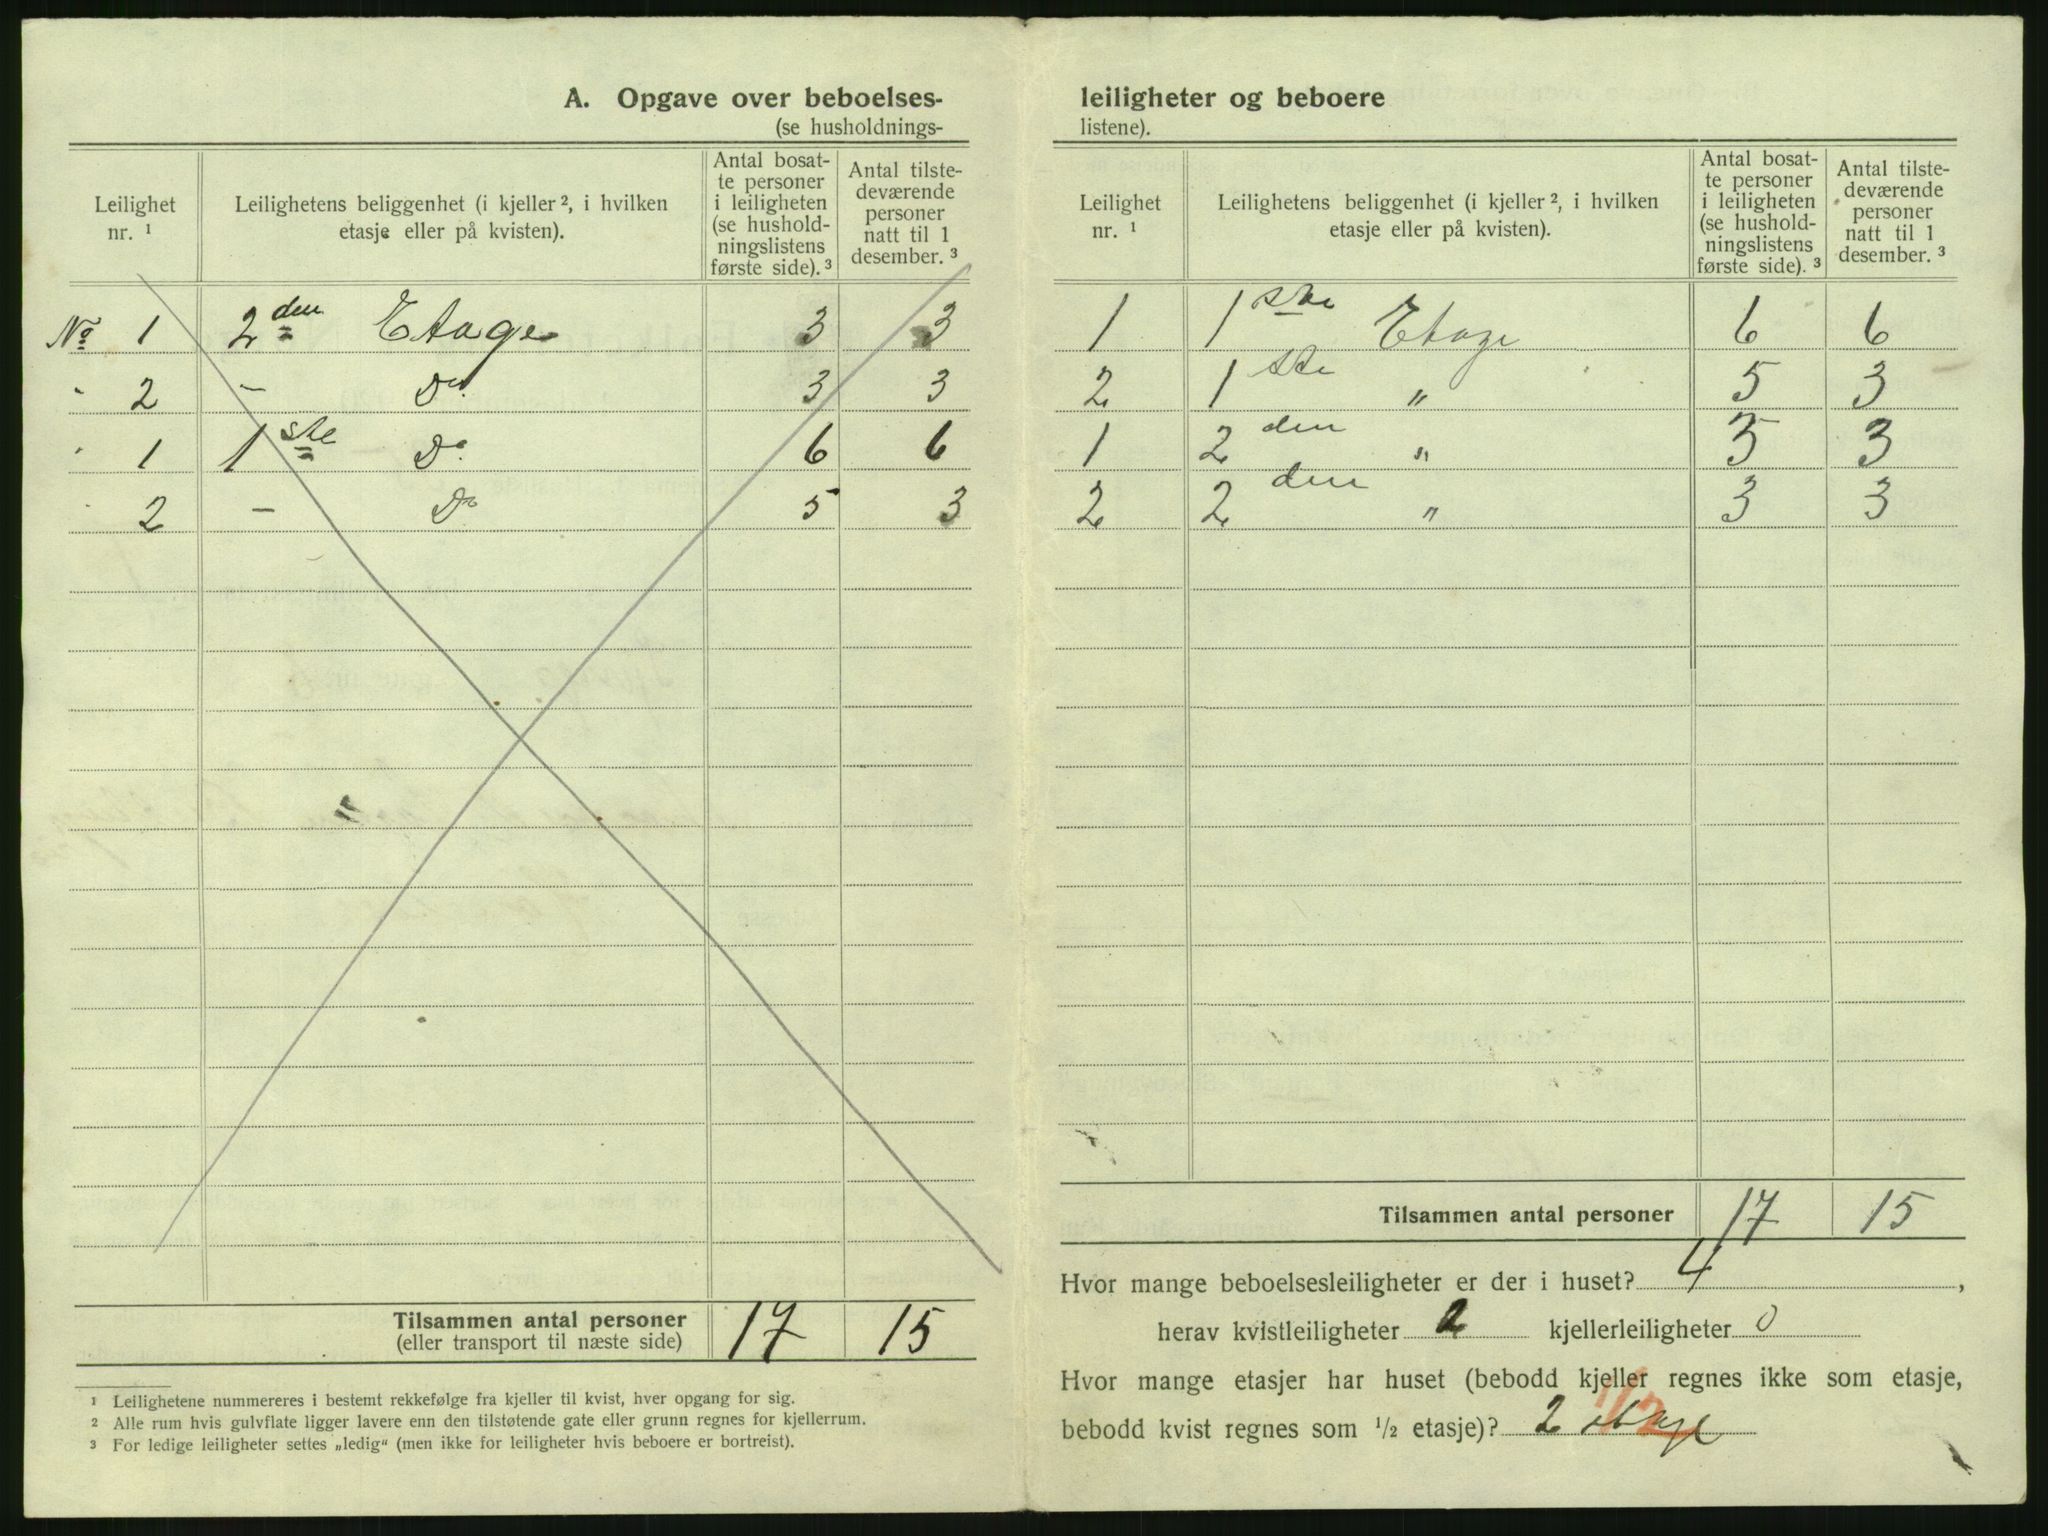 A. Opgave over beboelses-
(se husholdnings-
Leilighet nr. ¹
Leilighetens beliggenhet (i kjeller ², i hvilken etasje eller på kvisten).
Antal bosatte personer i leiligheten (se husholdningslistens første side). ³
Antal tilstedeværende personer natt til 1 desember. ³
No 1 2den Etage 3 3
" 2 – Do 3 3
" 1 1ste Do 6 6
" 2 – Do 5 3
Tilsammen antal personer 17 15
(eller transport til næste side)
¹ Leilighetene nummereres i bestemt rekkefølge fra kjeller til kvist, hver opgang for sig.
² Alle rum hvis gulvflate ligger lavere enn den tilstøtende gate eller grunn regnes for kjellerrum.
³ For ledige leiligheter settes „ledig" (men ikke for leiligheter hvis beboere er bortreist).
leiligheter og beboere
listene).
Leilighet nr. ¹
Leilighetens beliggenhet (i kjeller ², i hvilken etasje eller på kvisten).
Antal bosatte personer i leiligheten (se husholdningslistens første side). ³
Antal tilstedeværende personer natt til 1 desember. ³
1 1ste Etage 6 6
2 1ste " 5 3
1 2den " 3 3
2 2den " 3 3
Tilsammen antal personer 17 15
Hvor mange beboelsesleiligheter er der i huset? 4,
herav kvistleiligheter 2 kjellerleiligheter 0
Hvor mange etasjer har huset (bebodd kjeller regnes ikke som etasje,
bebodd kvist regnes som ½ etasje)? 2 etage